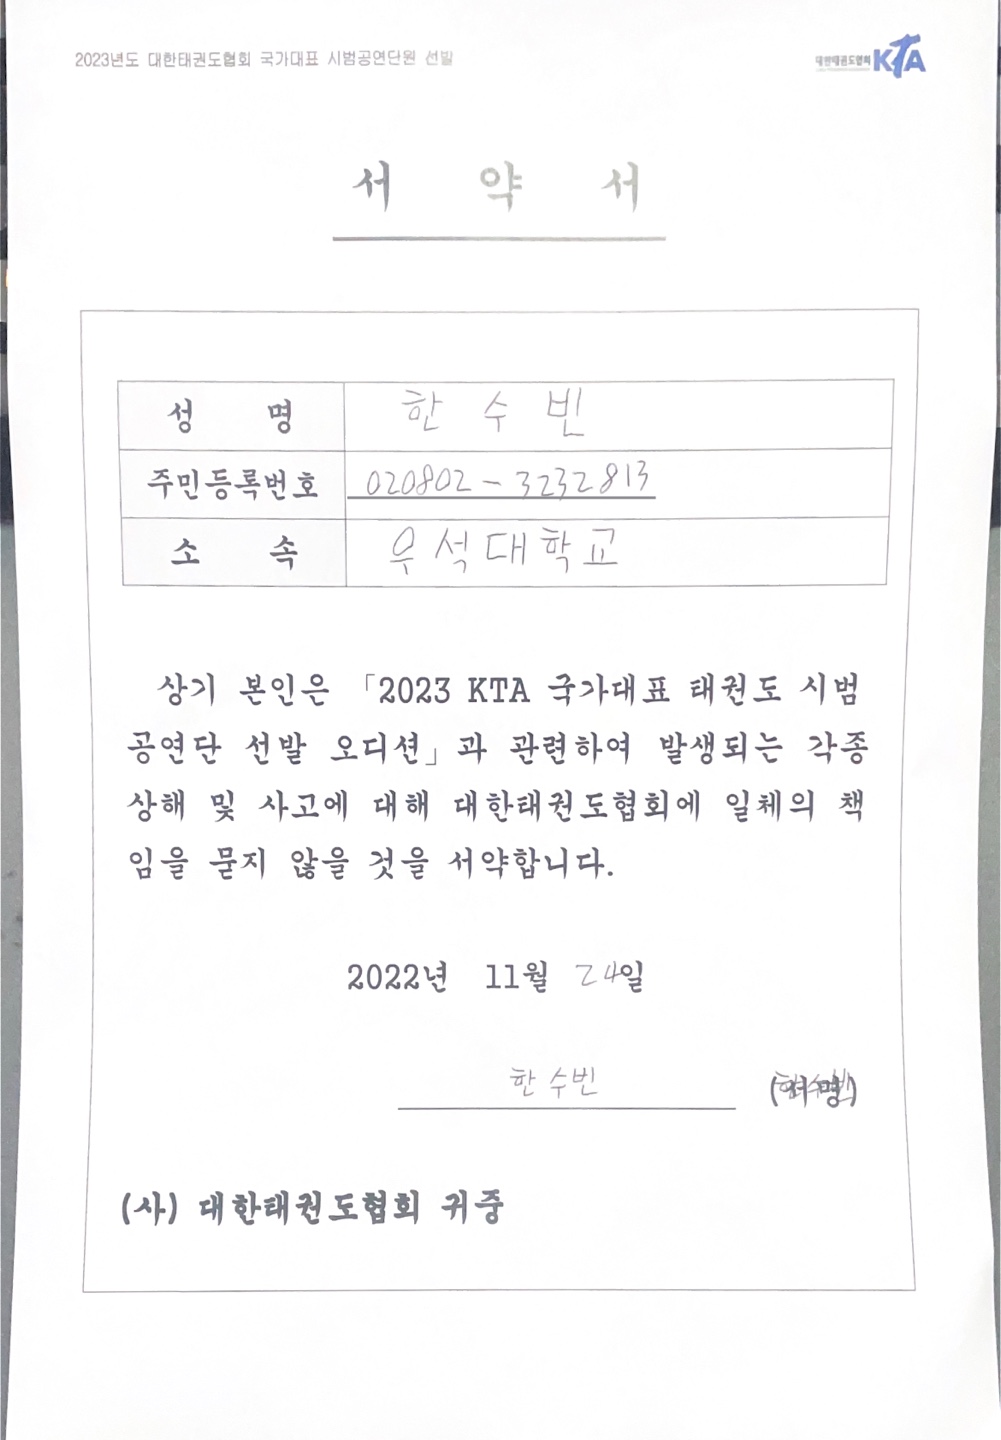 2023년도 대한태권도협회 국가대표 시범공연단원 선발
대한태권도협회 KTA
서 약 서
성 명 한 수 빈
주민등록번호 020802-3232813
소 속 우석대학교
상기 본인은 「2023 KTA 국가대표 태권도 시범
공연단 선발 오디션」과 관련하여 발생되는 각종
상해 및 사고에 대해 대한태권도협회에 일체의 책
임을 묻지 않을 것을 서약합니다.
2022년 11월 24일
한수빈 (서명) 한수빈
(사) 대한태권도협회 귀중